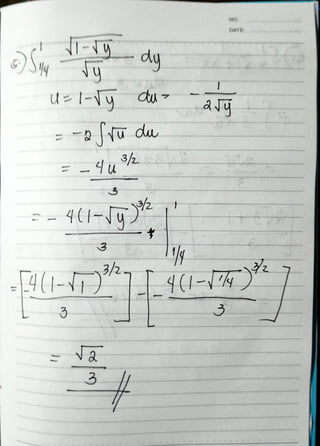 NO.
DATE
5.) ∫_{1/4}^{1} √(1-√y) / √y dy
u = 1-√y du = - 1 / 2√y
= -2 ∫√u du
= - 4u^{3/2} / 3
= - 4(1-√y)^{3/2} / 3 + |_{1/4}^{1}
= [-4(1-√1)^{3/2} / 3] - [- 4(1-√1/4)^{3/2} / 3]
= √2 / 3 //